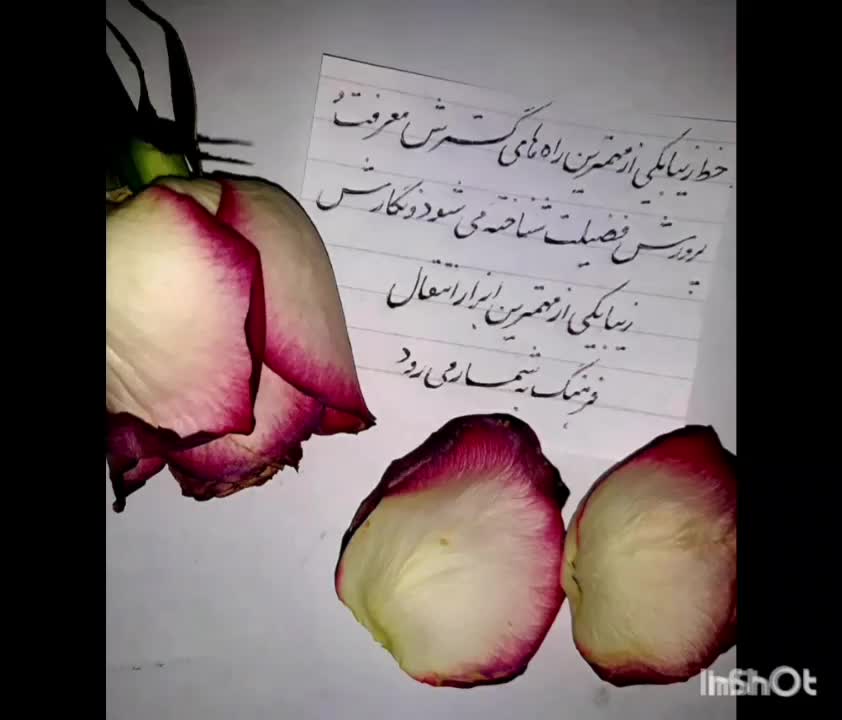 خط زیبا یکی از مهمترین راه های گسترش معرفت و
پرورش فضیلت شناخته می شود و نگارش
زیبا یکی از مهمترین ابزار انتقال
فرهنگ به شمار می رود
InShOt